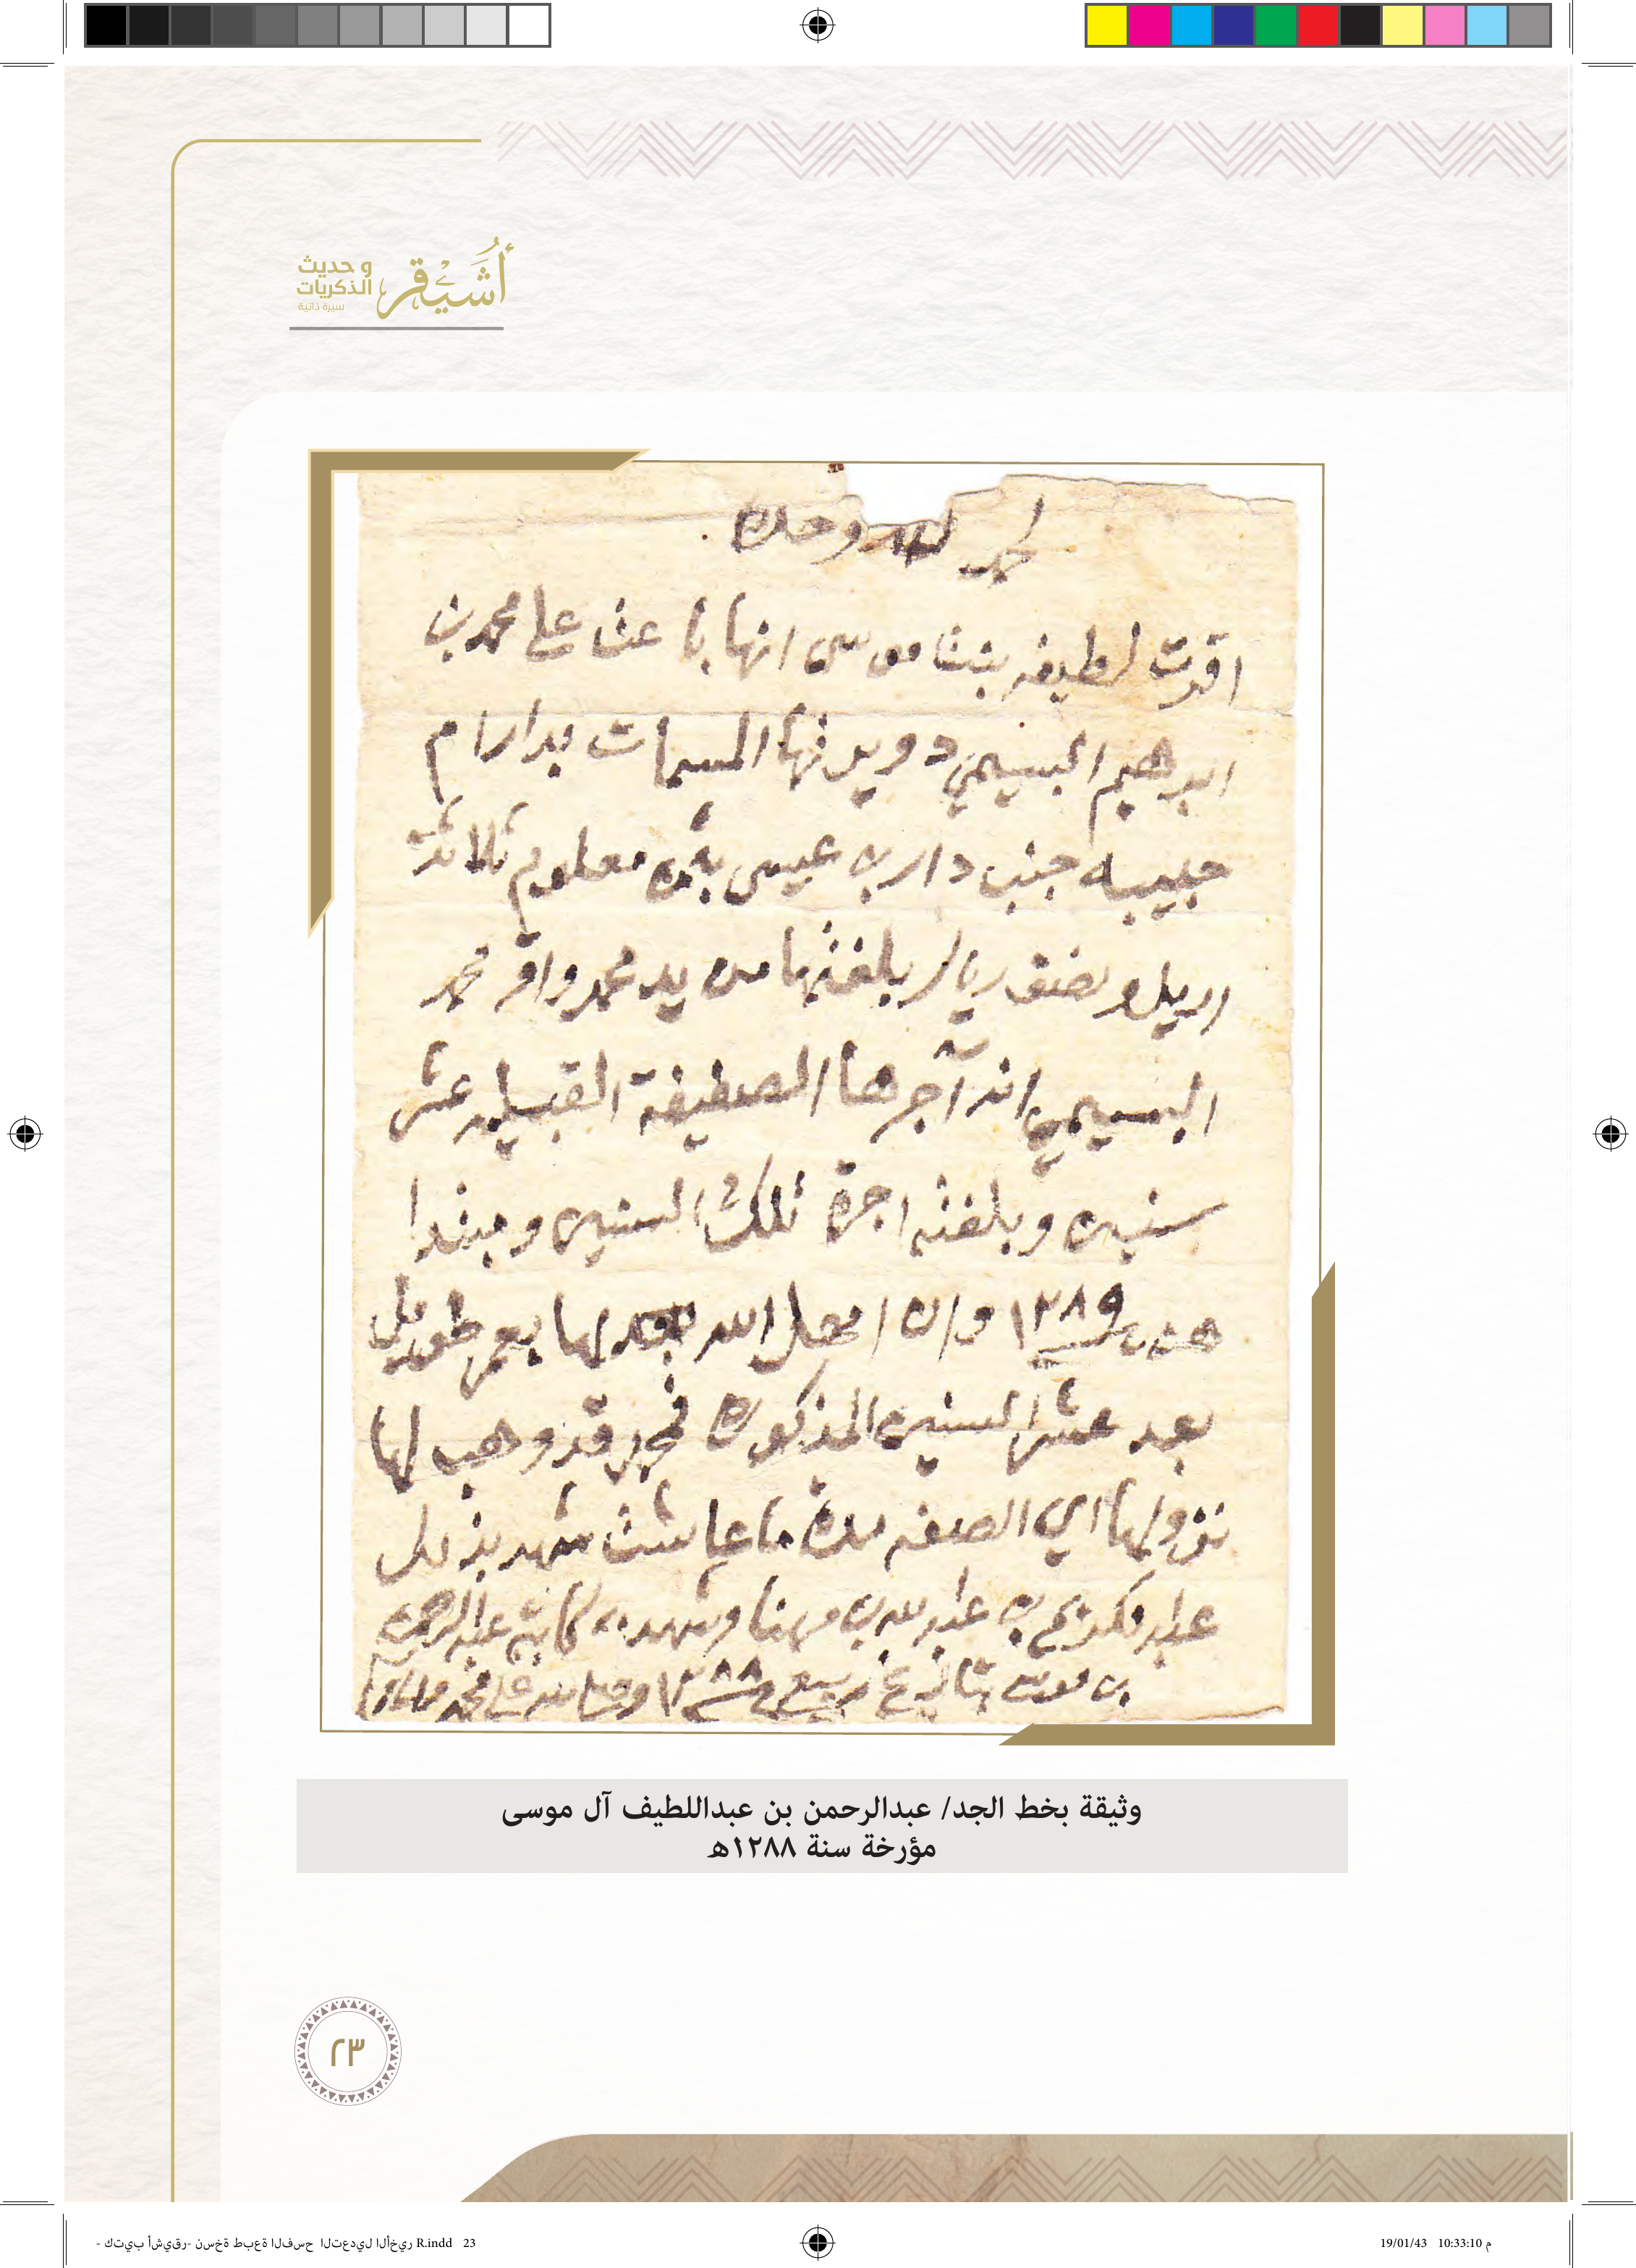 أُشَيْقر
و حديث
الذكريات
سيرة ذاتية
الحمد لله وحده
اقرت لطيفه بنت موسى انها باعت على محمد بن
ابرهيم البسيمي دويرتها المسمات بدار ام
حبيبه جنب دار بن عيسى بثمن معلوم ثلاثة
اريل ونصف ريال بلغتها من يد محمد واقر محمد
البسيمي انه آجرها الصفيفة القبليه عشر
سنين وبلغته اجرة تلك السنين ومبتدا
هن ١٢٨٩ وان الله لها بعمر طويل
بعد عشر السنين المذكوره فمحمد قد وهب لها
نزولها اي الصفه مدة ما عاشت شهد بذلك
عبدالكريم بن عبدالله بن مهنا وشهد به كاتبه عبدالرحمن
بن موسى ربيع ١٢٨٨ وصلى الله على محمد
وثيقة بخط الجد/ عبدالرحمن بن عبداللطيف آل موسى
مؤرخة سنة ١٢٨٨هـ
٢٣
- كتيب أشيقر- نسخة طبعة الفسح التعديل الأخير R.indd 23
19/01/43 10:33:10 م